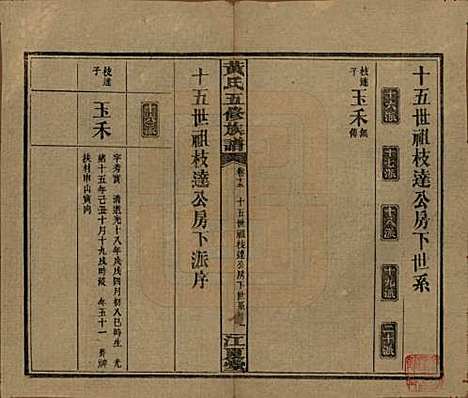 十五世祖枝達公房下世系
十六派
十七派
十八派
十九派
二十派
枝達子 玉禾 無傳
黃氏五修族譜
十五世祖枝達公房下世系
江夏堂
十五世祖枝達公房下派序
十六派
枝達子 玉禾
字希賓 清道光十八年戊戌四月初八巳時生 光
緒十五年己丑十月十九戌時歿 年五十一 葬
扶村申山寅向